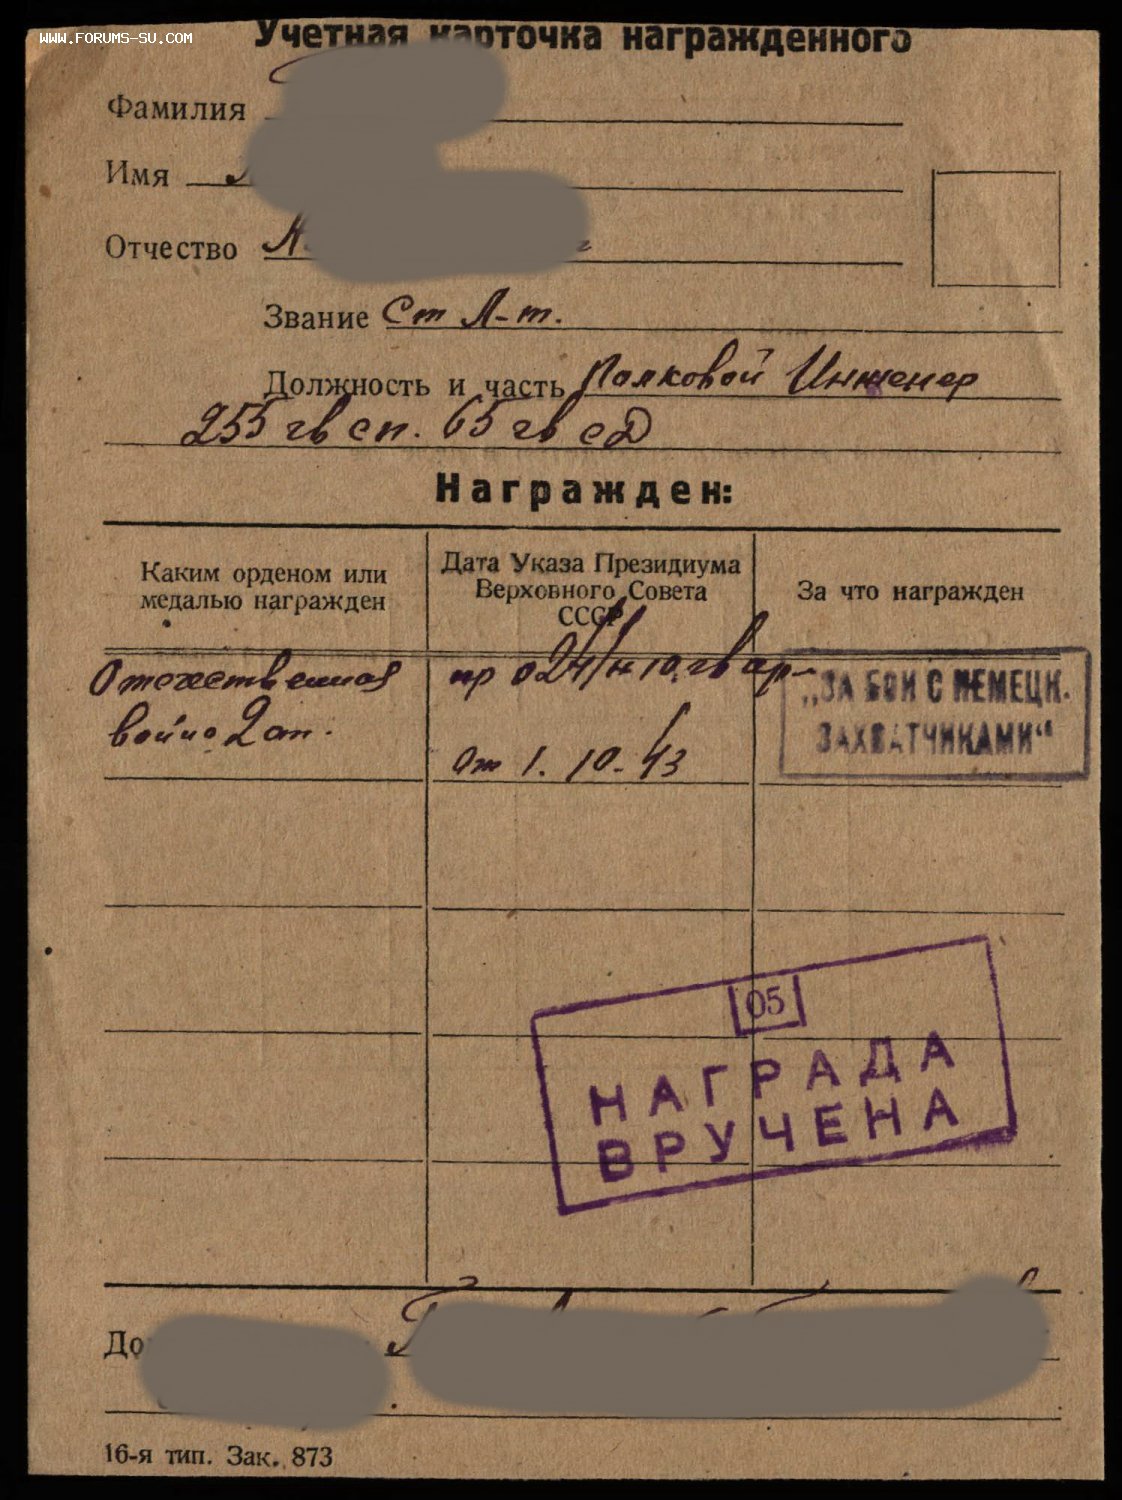 WWW.FORUMS-SU.COM
Учетная карточка награжденного
Фамилия
Имя
Отчество
Звание Ст Л-т.
Должность и часть Полковой Инженер
255 гв сп. 65 гв сд
Награжден:
Каким орденом или медалью награжден
Дата Указа Президиума Верховного Совета СССР
За что награжден
Отечественная
война 2 ст.
пр 024/н 10 гв ар-
От 1. 10. 43
„ЗА БОИ С НЕМЕЦК.
ЗАХВАТЧИКАМИ“
05
НАГРАДА
ВРУЧЕНА
16-я тип. Зак. 873